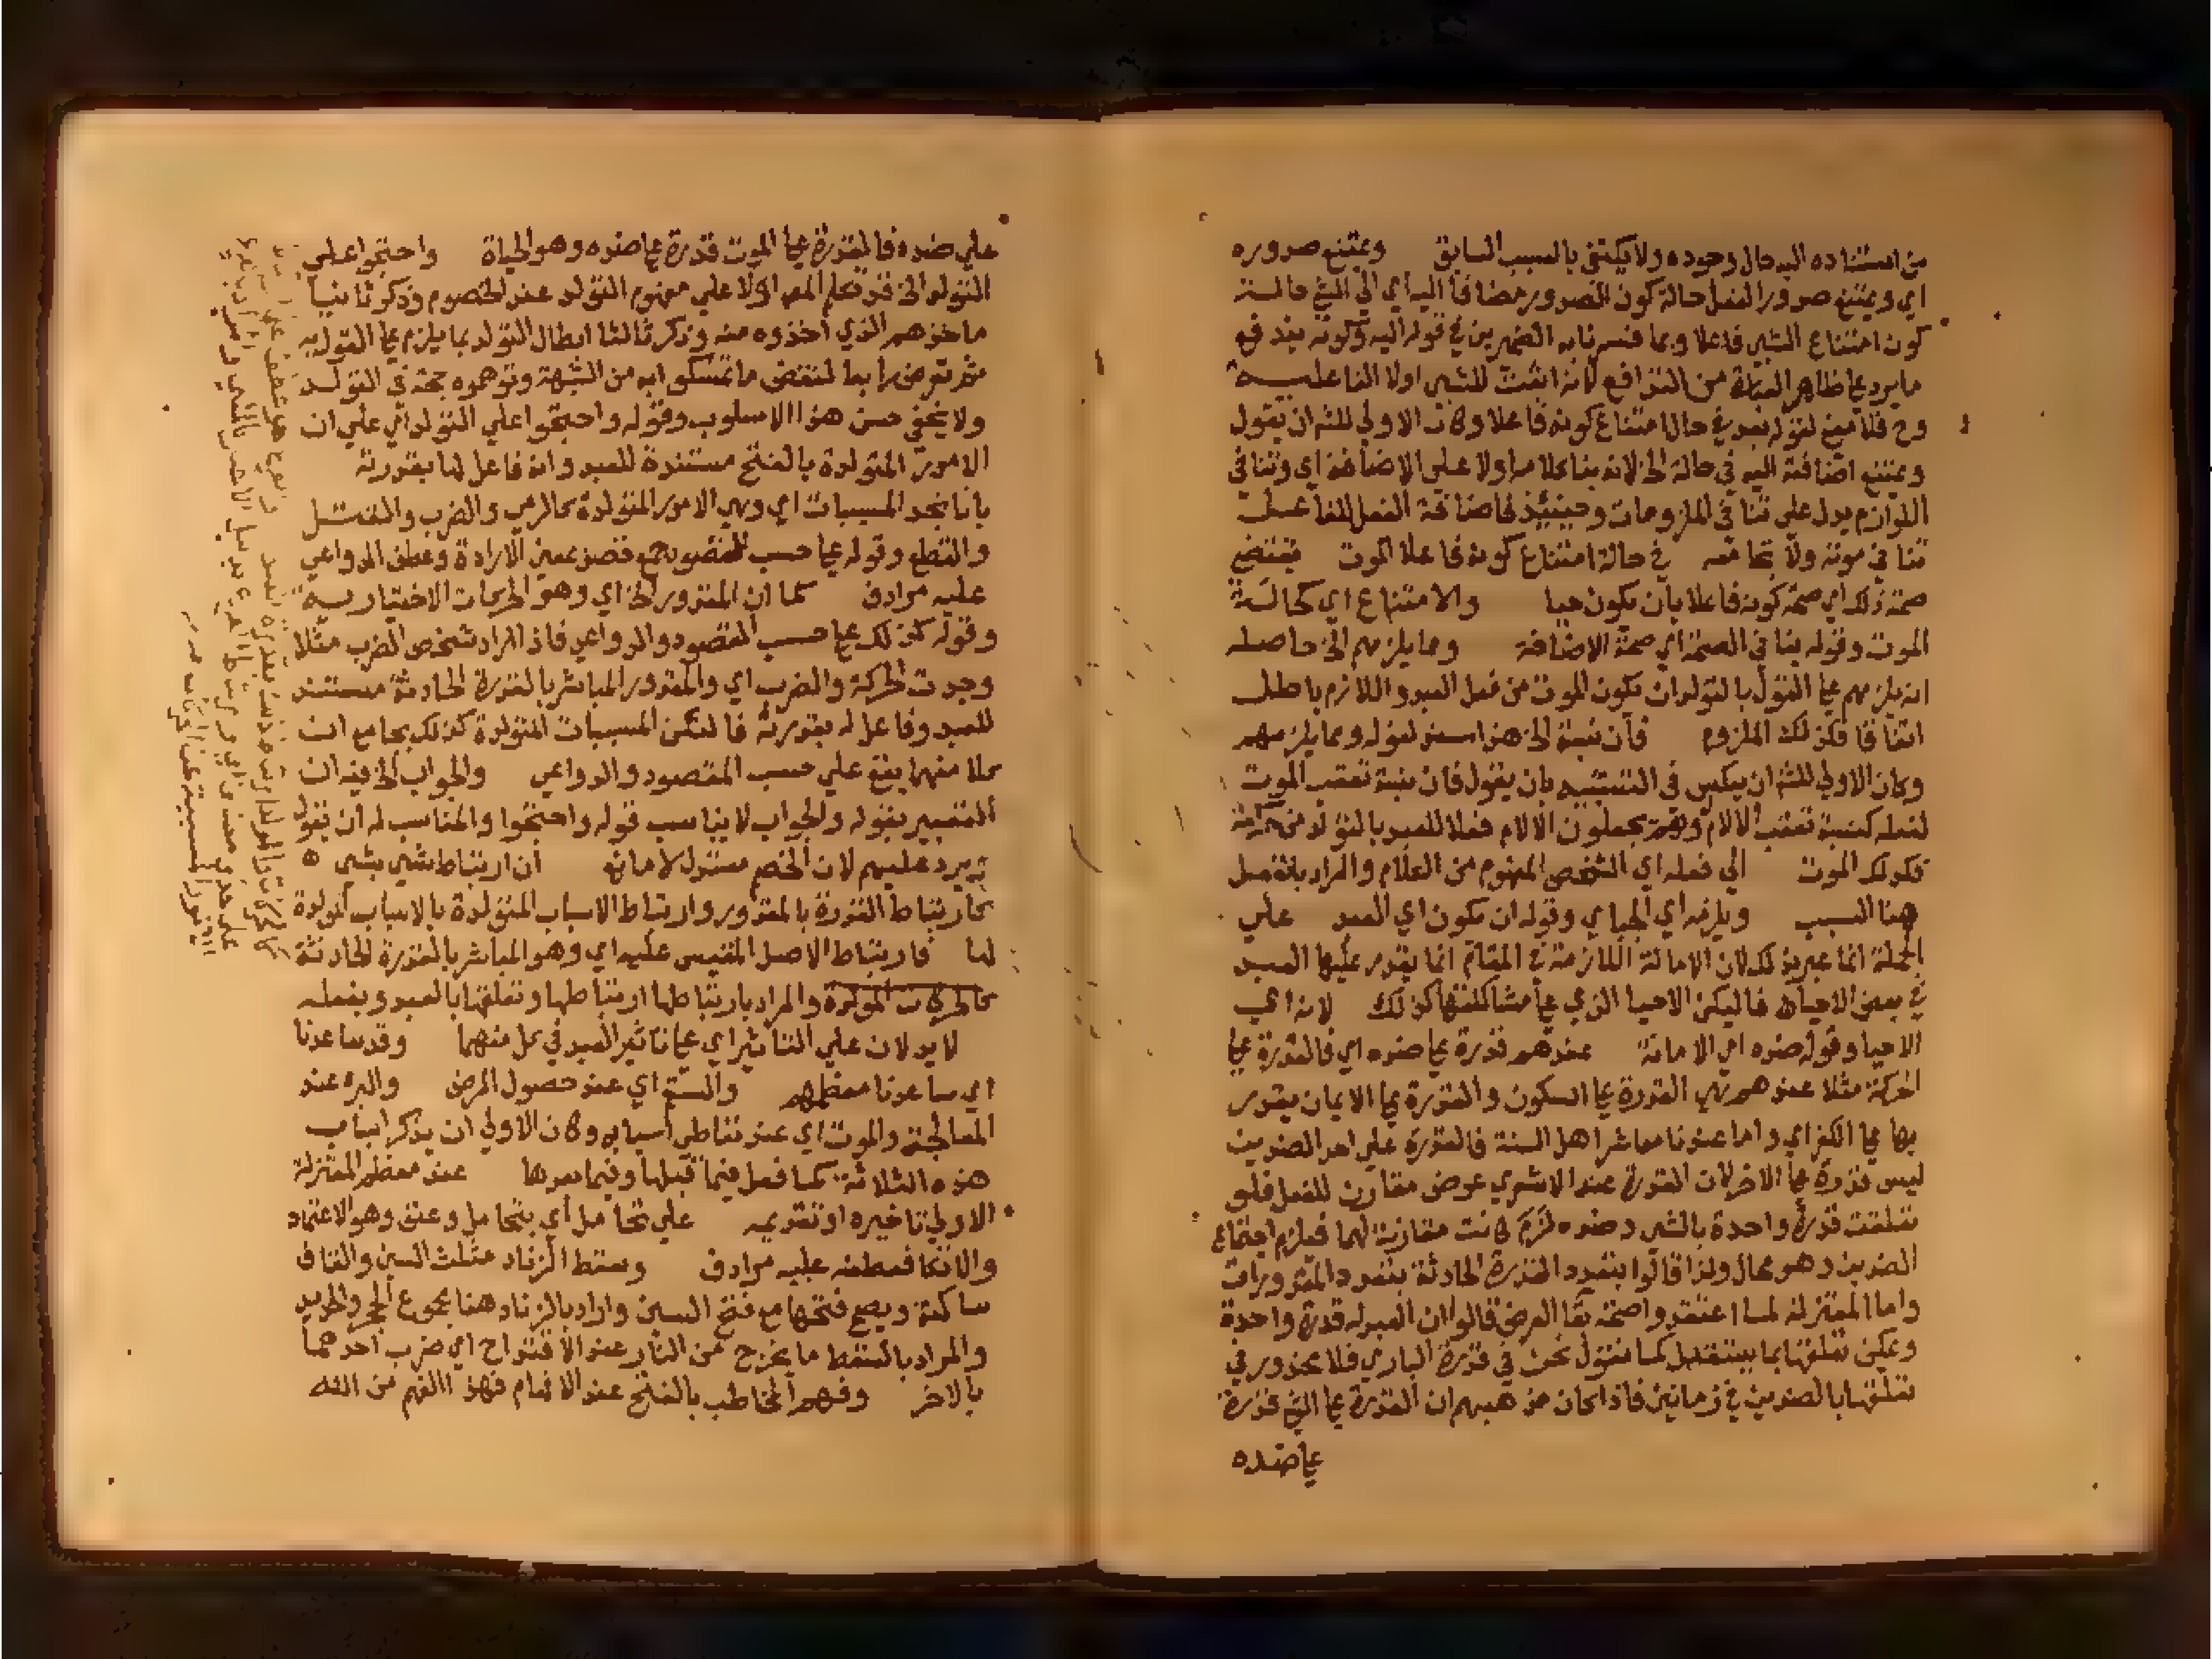 من استناده اليه حال وجوده ولا يكتفي بالسبب السابق ويمتنع صدوره
اي ويمتنع صدور الفعل حالة كون الصدور مضافا اليه اي الي الشي حالة
كون امتناع الشي فاعلا وبما فسرنا به الضميرين في قوله اليه وكونه يندفع
ما يرد علي ظاهر العبارة من التدافع لانه اثبت للشي اولا الفاعلية
وح فلا معني لقوله بعد في حال امتناع كونه فاعلا وكان الاولي للش ان يقول
ويمتنع اضافته اليه في حالة الخ لانه بنا كلامه اولا علي الاضافة اي وتنافي
اللوازم يدل علي تنافي الملزومات وحينئذ فاضافة الفعل للفاعل
تنافي موته ولا تجامعه في حالة امتناع كونه فاعلا الموت يقتضي
صحة ذلك اي صحة كونه فاعلا بان يكون حيا والامتناع اي كحالة
الموت وقوله ينافي الصحة اي صحة الاضافة وما يلزمهم الخ حاصله
انه يلزمهم علي القول بالتولد ان يكون الموت من فعل العبد واللازم باطل
اتفاقا فكذلك الملزوم فان نسبة الخ هذا سند لقوله وما يلزمهم
وكان الاولي للش ان يعكس في التشبيه بان يقول فان نسبة تعقب الموت
لفعله كنسبة تعقب الالام وهم يجعلون الالام فعلا للعبد بالتولد من
فكذلك الموت الي فعله اي الشخص المفهوم من الكلام والمراد بالفعل
هنا السبب ويلزمه اي الجباي وقوله ان يكون اي العبد علي
الجملة انما عبر بذلك لان الاماتة اللازمة في المقام انما يقدر عليها العبد
في بعض الاحيان فاليكن الاحيا الذي علي مشاكلتها كذلك لانه اي
الاحيا وقوله ضده اي الاماتة عندهم قدرة علي ضده اي فالقدرة علي
الحركة مثلا عندهم هي القدرة علي السكون والقدرة علي الايمان يقدر
بها علي الكفر اي واما عندنا معاشر اهل السنة فالقدرة علي احد الضدين
ليس قدرة علي الاخر لان القدرة عند الاشعري عرض مقارن للفعل فلو
تعلقت قدرة واحدة بالشي وضده لزم كانت مقارنة لهما فيلزم اجتماع
الضدين وهو محال ولذا قالوا بتعدد القدرة الحادثة بتعدد المقدورات
واما المعتزلة لما اعتقدوا صحة بقا العرض قالوا ان العبد له قدرة واحدة
ويمكن تعلقها بما يستقبل كما نقول نحن في قدرة الباري فلا محذور في
تعلقها بالضدين في زمانين فاذا كان مذهبهم ان القدرة علي الشي قدرة
علي ضده
علي ضده فالقدرة علي الموت قدرة علي ضده وهو الحياة واحتجوا علي
التولد الخ قد تكلم المص اولا علي مفهوم التولد عند الخصوم وذكر ثانيا
ماخذهم الذي اخذوه منه وذكر ثالثا ابطال التولد بما يلزم علي القول به
ثم تعرض رابعا لنقض ما تمسكوا به من الشبهة وتوهموه حجة في التولد
ولا يخفي حسن هذا الاسلوب وقوله واحتجوا علي التولد اي علي ان
الامور المتولدة بالفتح مستندة للعبد وانه فاعل لها بقدرته
بانا نجد المسببات اي وهي الامور المتولدة كالرمي والضرب والقتل
والقطع وقوله علي حسب القصود جمع قصد بمعني الارادة وعطف الدواعي
عليه مرادف كما ان المقدور الخ اي وهو الحركات الاختيارية
وقوله كذلك علي حسب القصود والدواعي فاذا اراد شخص الضرب مثلا
وجدت الحركة والضرب اي والمقدور المباشر بالقدرة الحادثة مستند
للعبد وفاعل له بقدرته فالتكن المسببات المتولدة كذلك بجامع ان
كلا منهما يقع علي حسب القصود والدواعي والجواب الخ فيه ان
التعبير بقوله والجواب لا يناسب قوله واحتجوا والمناسب له ان يقول
يرد عليهم لان الخصم مستدل لا مانع ان ارتباط شي بشي
كارتباط القدرة بالمقدور وارتباط الاسباب المتولدة بالاسباب المولدة
لها فارتباط الاصل المقيس عليه اي وهو المباشر بالقدرة الحادثة
كالحركات المولدة والمراد بارتباطها ارتباطها وتعلقها بالعبد وبفعله
لا يدلان علي التاثير اي علي تاثير العبد في كل منهما وقد ساعدنا
اي ساعدنا معظمهم والسقم اي عند حصول المرض والبرء عند
المعالجة والموت اي عند تعاطي اسبابه وكان الاولي ان يذكر اسباب
هذه الثلاثة كما فعل فيما قبلها وفيما بعدها عند معظم المعتزلة
الاولي تاخيره او تقديمه علي تحامل اي بتحامل وعنف وهو الاعتماد
والاتكا فعطفه عليه مرادف وسقط الزناد مثلث السين والقاف
ساكنة ويصح فتحها مع فتح السين واراد بالزناد هنا مجموع الحجر والحديد
والمراد بالسقط ما يخرج من النار عند الاقتداح اي ضرب احدهما
بالاخر وفهم المخاطب بالفتح عند الافهام فهذا الفهم من الله